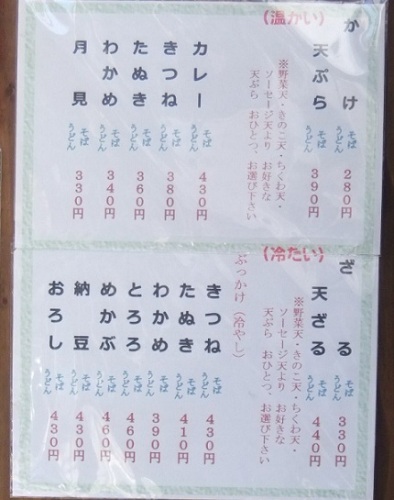 (温かい)
かけ そば うどん 280円
天ぷら そば うどん 390円
※野菜天・きのこ天・ちくわ天・
ソーセージ天より お好きな
天ぷら おひとつ、お選び下さい
カレー そば うどん 430円
きつね そば うどん 380円
たぬき そば うどん 360円
わかめ そば うどん 340円
月見 そば うどん 330円
(冷たい)
ざる そば うどん 330円
天ざる そば うどん 440円
※野菜天・きのこ天・ちくわ天・
ソーセージ天より お好きな
天ぷら おひとつ、お選び下さい
ぶっかけ(冷やし)
きつね そば うどん 430円
たぬき そば うどん 410円
わかめ そば うどん 390円
とろろ そば うどん 460円
めかぶ そば うどん 460円
納豆 そば うどん 430円
おろし そば うどん 430円